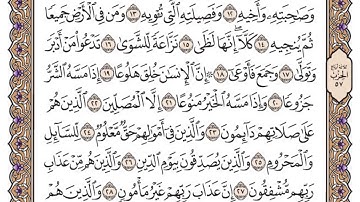 وَصَٰحِبَتِهِۦ وَأَخِيهِ ١٢ وَفَصِيلَتِهِ ٱلَّتِى تُـْٔوِيهِ ١٣ وَمَن فِى ٱلْأَرْضِ جَمِيعًا
ثُمَّ يُنجِيهِ ١٤ كَلَّآ إِنَّهَا لَظَىٰ ١٥ نَزَّاعَةً لِّلشَّوَىٰ ١٦ تَدْعُوا۟ مَنْ أَدْبَرَ
وَتَوَلَّىٰ ١٧ وَجَمَعَ فَأَوْعَىٰٓ ١٨ إِنَّ ٱلْإِنسَٰنَ خُلِقَ هَلُوعًا ١٩ إِذَا مَسَّهُ ٱلشَّرُّ
جَزُوعًا ٢٠ وَإِذَا مَسَّهُ ٱلْخَيْرُ مَنُوعًا ٢١ إِلَّا ٱلْمُصَلِّينَ ٢٢ ٱلَّذِينَ هُمْ
عَلَىٰ صَلَاتِهِمْ دَآئِمُونَ ٢٣ وَٱلَّذِينَ فِىٓ أَمْوَٰلِهِمْ حَقٌّ مَّعْلُومٌ ٢٤ لِّلسَّآئِلِ
وَٱلْمَحْرُومِ ٢٥ وَٱلَّذِينَ يُصَدِّقُونَ بِيَوْمِ ٱلدِّينِ ٢٦ وَٱلَّذِينَ هُم مِّنْ عَذَابِ
رَبِّهِم مُّشْفِقُونَ ٢٧ إِنَّ عَذَابَ رَبِّهِمْ غَيْرُ مَأْمُونٍ ٢٨ وَٱلَّذِينَ هُمْ
الحزب
٥٧